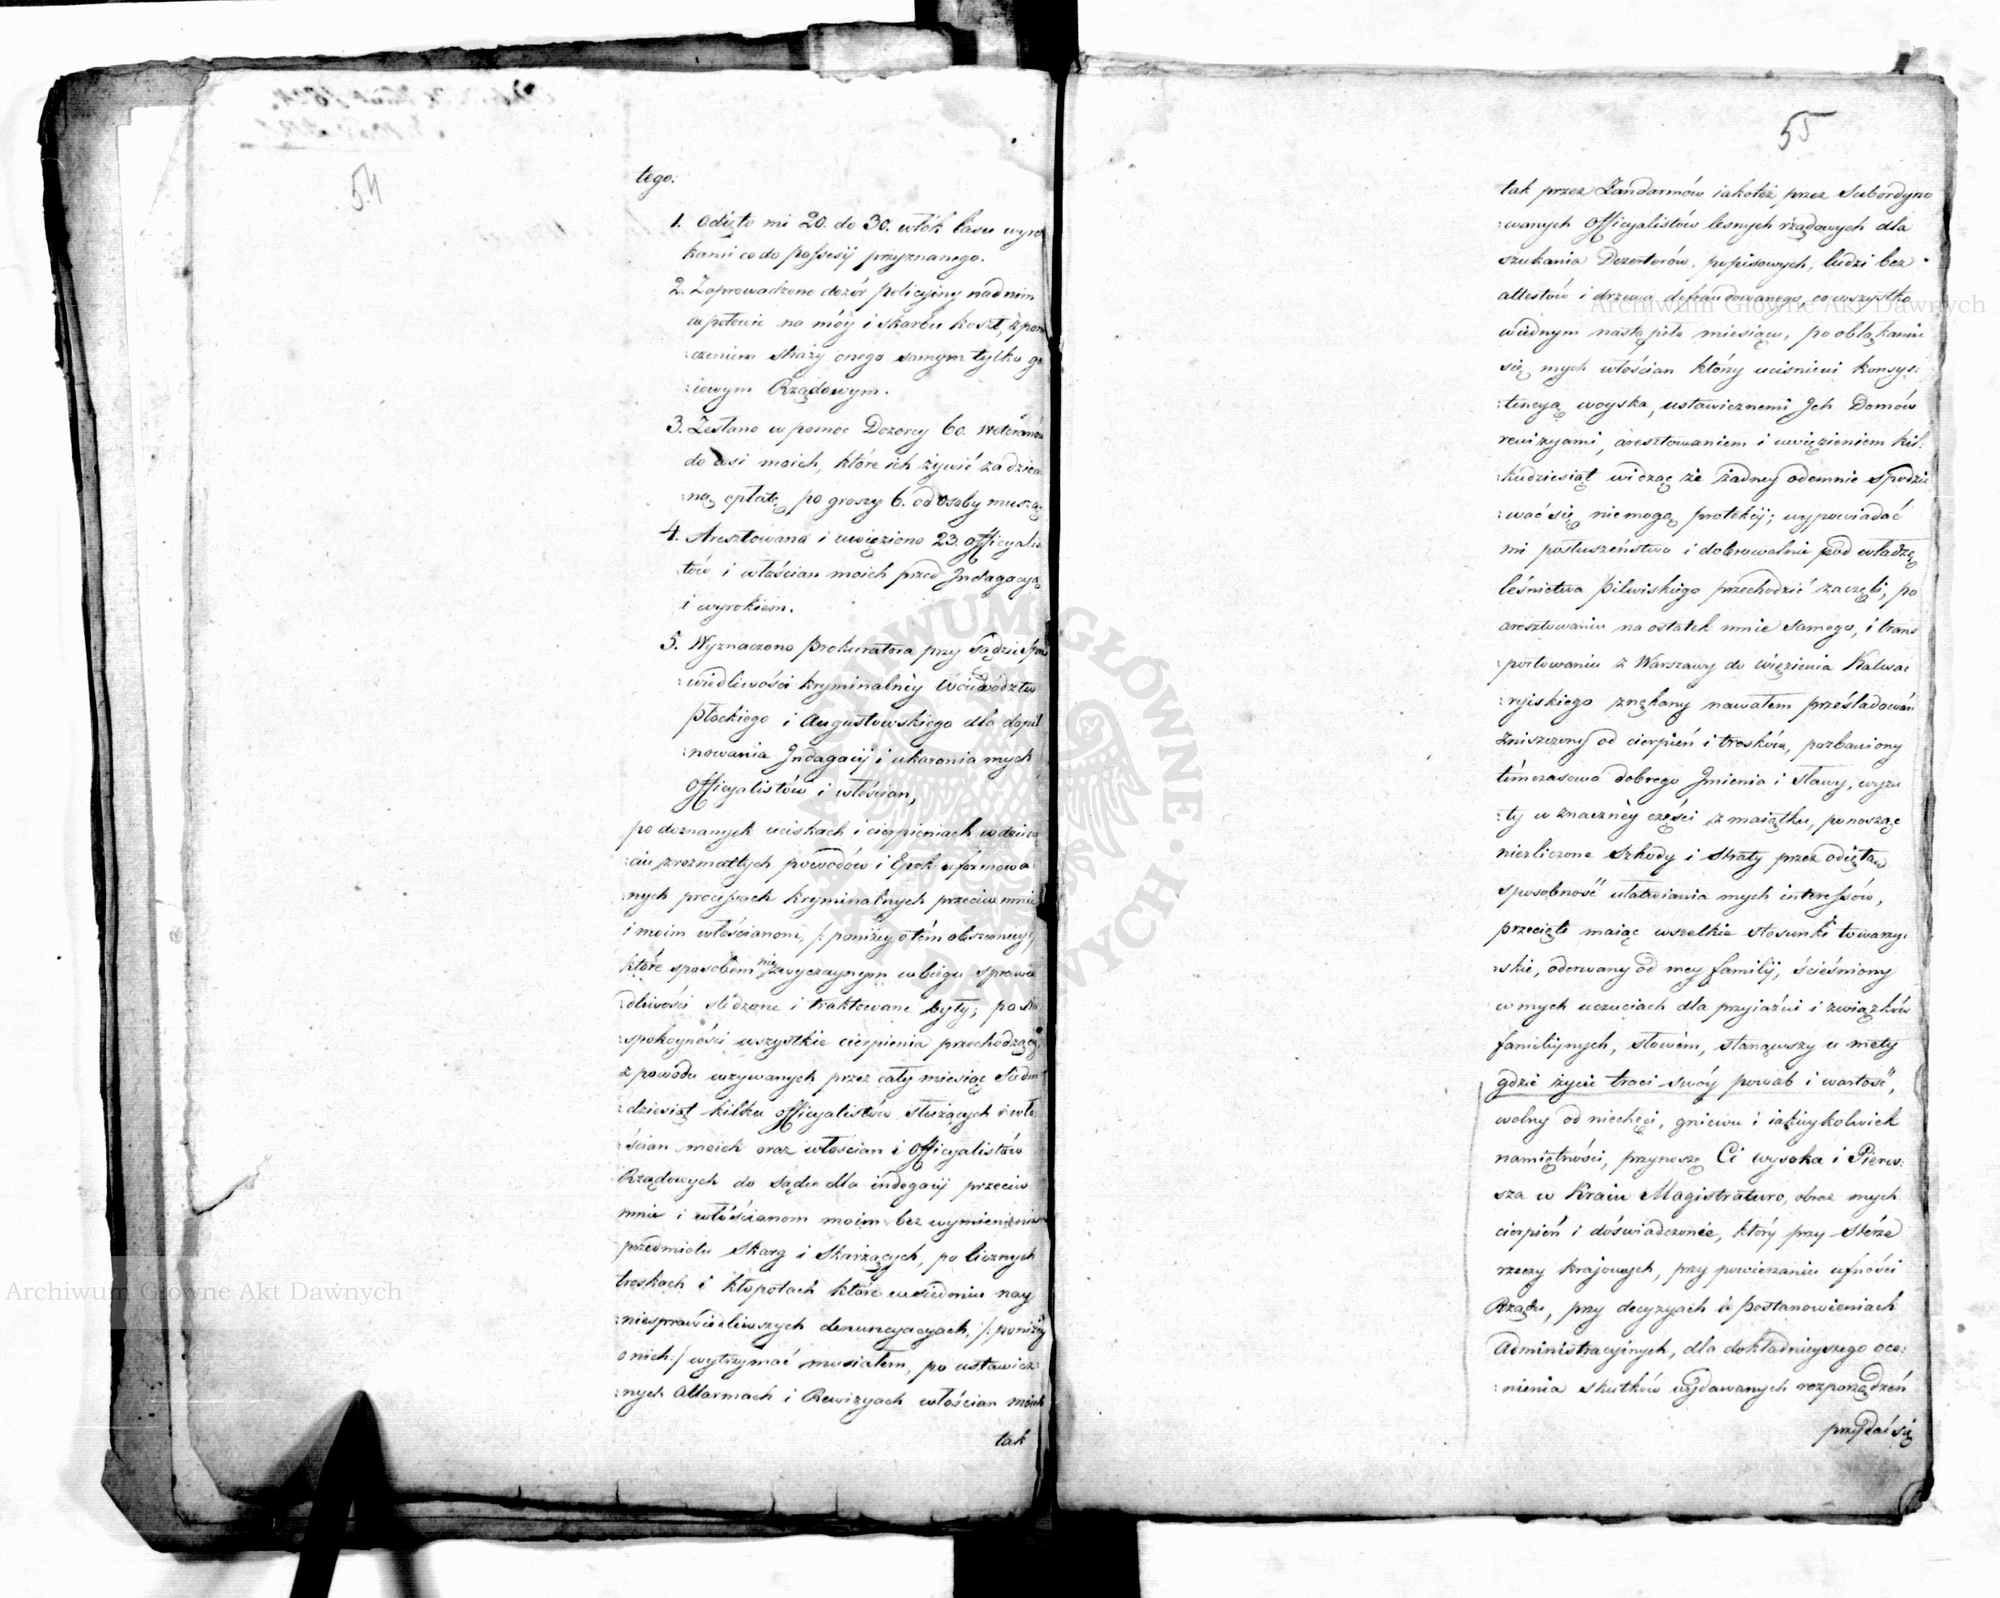 54
tego:
1. Odięto mi 20. do 30. włók lasu wyro
kami co do possesij przyznanego.
2. Zaprowadzono dozór policyiny nad nim
w połowie na móy i skarbu koszt, z poru
:czeniem straży onego samym tylko ga
:iowym Rządowym.
3. Zesłano w pomoc Dozorcy 60. Weteranów
do wsi moich, które ich żywić za dzien
:ną opłatę po groszy 6. od osoby muszą
4. Aresztowano i uwięziono 23. officyalis
tów i włościan moich przed Indagacyą
i wyrokiem.
5. Wyznaczono Prokuratora przy Sądzie Spra
:wiedliwości kryminalnéy Woiewództw
Płockiego i Augustowskiego dla dopil
:nowania Indagacij i ukarania mych
Officyalistów i włościan,
po doznanych uciskach i cierpieniach w dzie
:ciu z rozmaitych powodów i Epok uformowa
:nych processach kryminalnych przeciw mnie
i moim włościanom, /: poniżéy o tém obszerniéy :/
które sposobem niezwyczaynym w biegu sprawie
:dliwości śledzone i traktowane były; po
:spokoyności wszystkie cierpienia przechodzącéy
z powodu wzywanych przez cały miesiąc Siedm
:dziesiąt kilku officyalistów służących i wło
:ścian moich oraz włościan i Officyalistów
Rządowych do sądu dla indagacij przeciw
mnie i włościanom moim bez wymienienia
przedmiotu Skarg i Skarżących, po licznych
troskach i kłopotach które w siedmiu nay
:niesprawiedliwszych denuncyacyach, /: poniżéy
o nich :/ wytrzymać musiałem, po ustawicz:
:nych Allarmach i Rewizyach włościan moich
tak
55
tak przez Żandarmów iakoteż przez Subordyno
:wanych Officyalistów lesnych rządowych dla
szukania Dezerterów, popisowych, ludzi bez
attestów i drzewa defraudowanego, co wszystko
w iednym nastąpiło miesiącu, po obłąkaniu
się mych włościan którzy uciśnieni konsys:
:tencyą woyska, ustawicznemi Ich Domów
rewizyami, aresztowaniem i uwięzieniem kil:
:kudziesiąt widząc że żadney odemnie spodzie
:wać się niemogą protekcij; wypowiadać
mi posłuszeństwo i dobrowolnie pod władzę
leśnictwa Pilwiskiego przechodzić zaczęli, po
aresztowaniu na ostatek mnie samego, i trans
:portowaniu z Warszawy do więzienia Kalwa:
:ryiskiego znękany nawałem prześladowań
zniszczony od cierpień i trosków, pozbawiony
tymczasowo dobrego Imienia i sławy, wyzu
:ty w znacznéy części z maiątku, ponosząc
niezliczone szkody i straty przez odiętą
sposobność ułatwiania mych interessów,
przecięte maiąc wszelkie stosunki towarzy:
:skie, oderwany od mey familij, ścieśniony
w mych uczuciach dla przyiaźni i związków
familiynych, słowem, stanąwszy u mety
gdzie życie traci swóy powab i wartość,
wolny od niechęci, gniewu i iakieykolwiek
namiętności, przynoszę Ci wysoka i Pierw:
sza w Kraiu Magistraturo, obraz mych
cierpień i doświadczenie, który przy stérze
rzeczy krajowych, przy powierzaniu ufności
Rządu, przy decyzyach i postanowieniach
Administracyinych, dla dokładnieyszego oce:
:nienia skutków wydawanych rozporządzeń
przydać się
Archiwum Główne Akt Dawnych
Archiwum Główne Akt Dawnych
ARCHIWUM GŁÓWNE AKT DAWNYCH